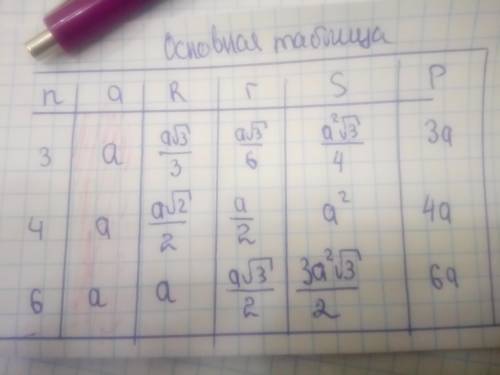 Основная таблица
n a R r S P
3 a a√3/3 a√3/6 a²√3/4 3a
4 a a√2/2 a/2 a² 4a
6 a a a√3/2 3a²√3/2 6a